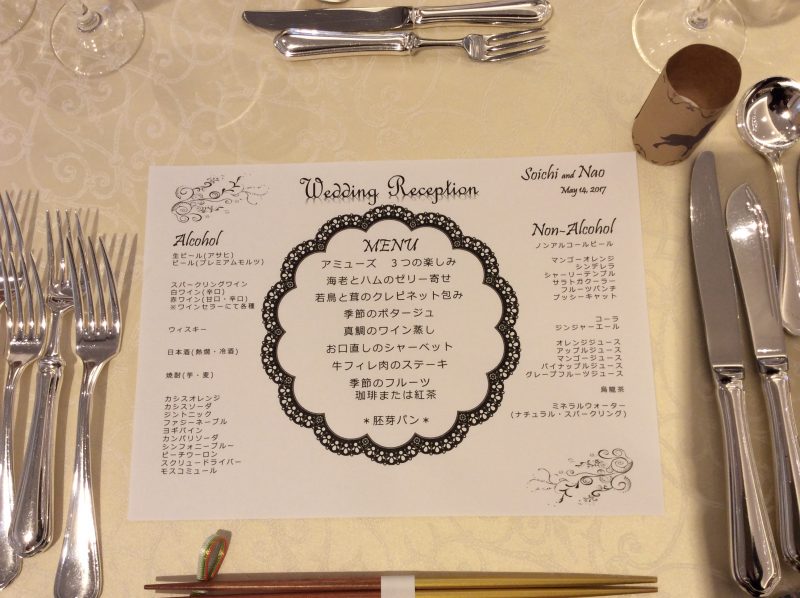 Wedding Reception
Soichi and Nao
May 14, 2017
Alcohol
生ビール(アサヒ)
ビール(プレミアムモルツ)
スパークリングワイン
白ワイン(辛口)
赤ワイン(甘口・辛口)
※ワインセラーにて各種
ウィスキー
日本酒(熱燗・冷酒)
焼酎(芋・麦)
カシスオレンジ
カシスソーダ
ジントニック
ファジーネーブル
ヨギパイン
カンパリソーダ
シンフォニーブルー
ピーチウーロン
スクリュードライバー
モスコミュール
MENU
アミューズ 3つの楽しみ
海老とハムのゼリー寄せ
若鳥と茸のクレピネット包み
季節のポタージュ
真鯛のワイン蒸し
お口直しのシャーベット
牛フィレ肉のステーキ
季節のフルーツ
珈琲または紅茶
*胚芽パン*
Non-Alcohol
ノンアルコールビール
マンゴーオレンジ
シンデレラ
シャーリーテンプル
サラトガクーラー
フルーツパンチ
プッシーキャット
コーラ
ジンジャーエール
オレンジジュース
アップルジュース
マンゴージュース
パイナップルジュース
グレープフルーツジュース
烏龍茶
ミネラルウォーター
(ナチュラル・スパークリング)